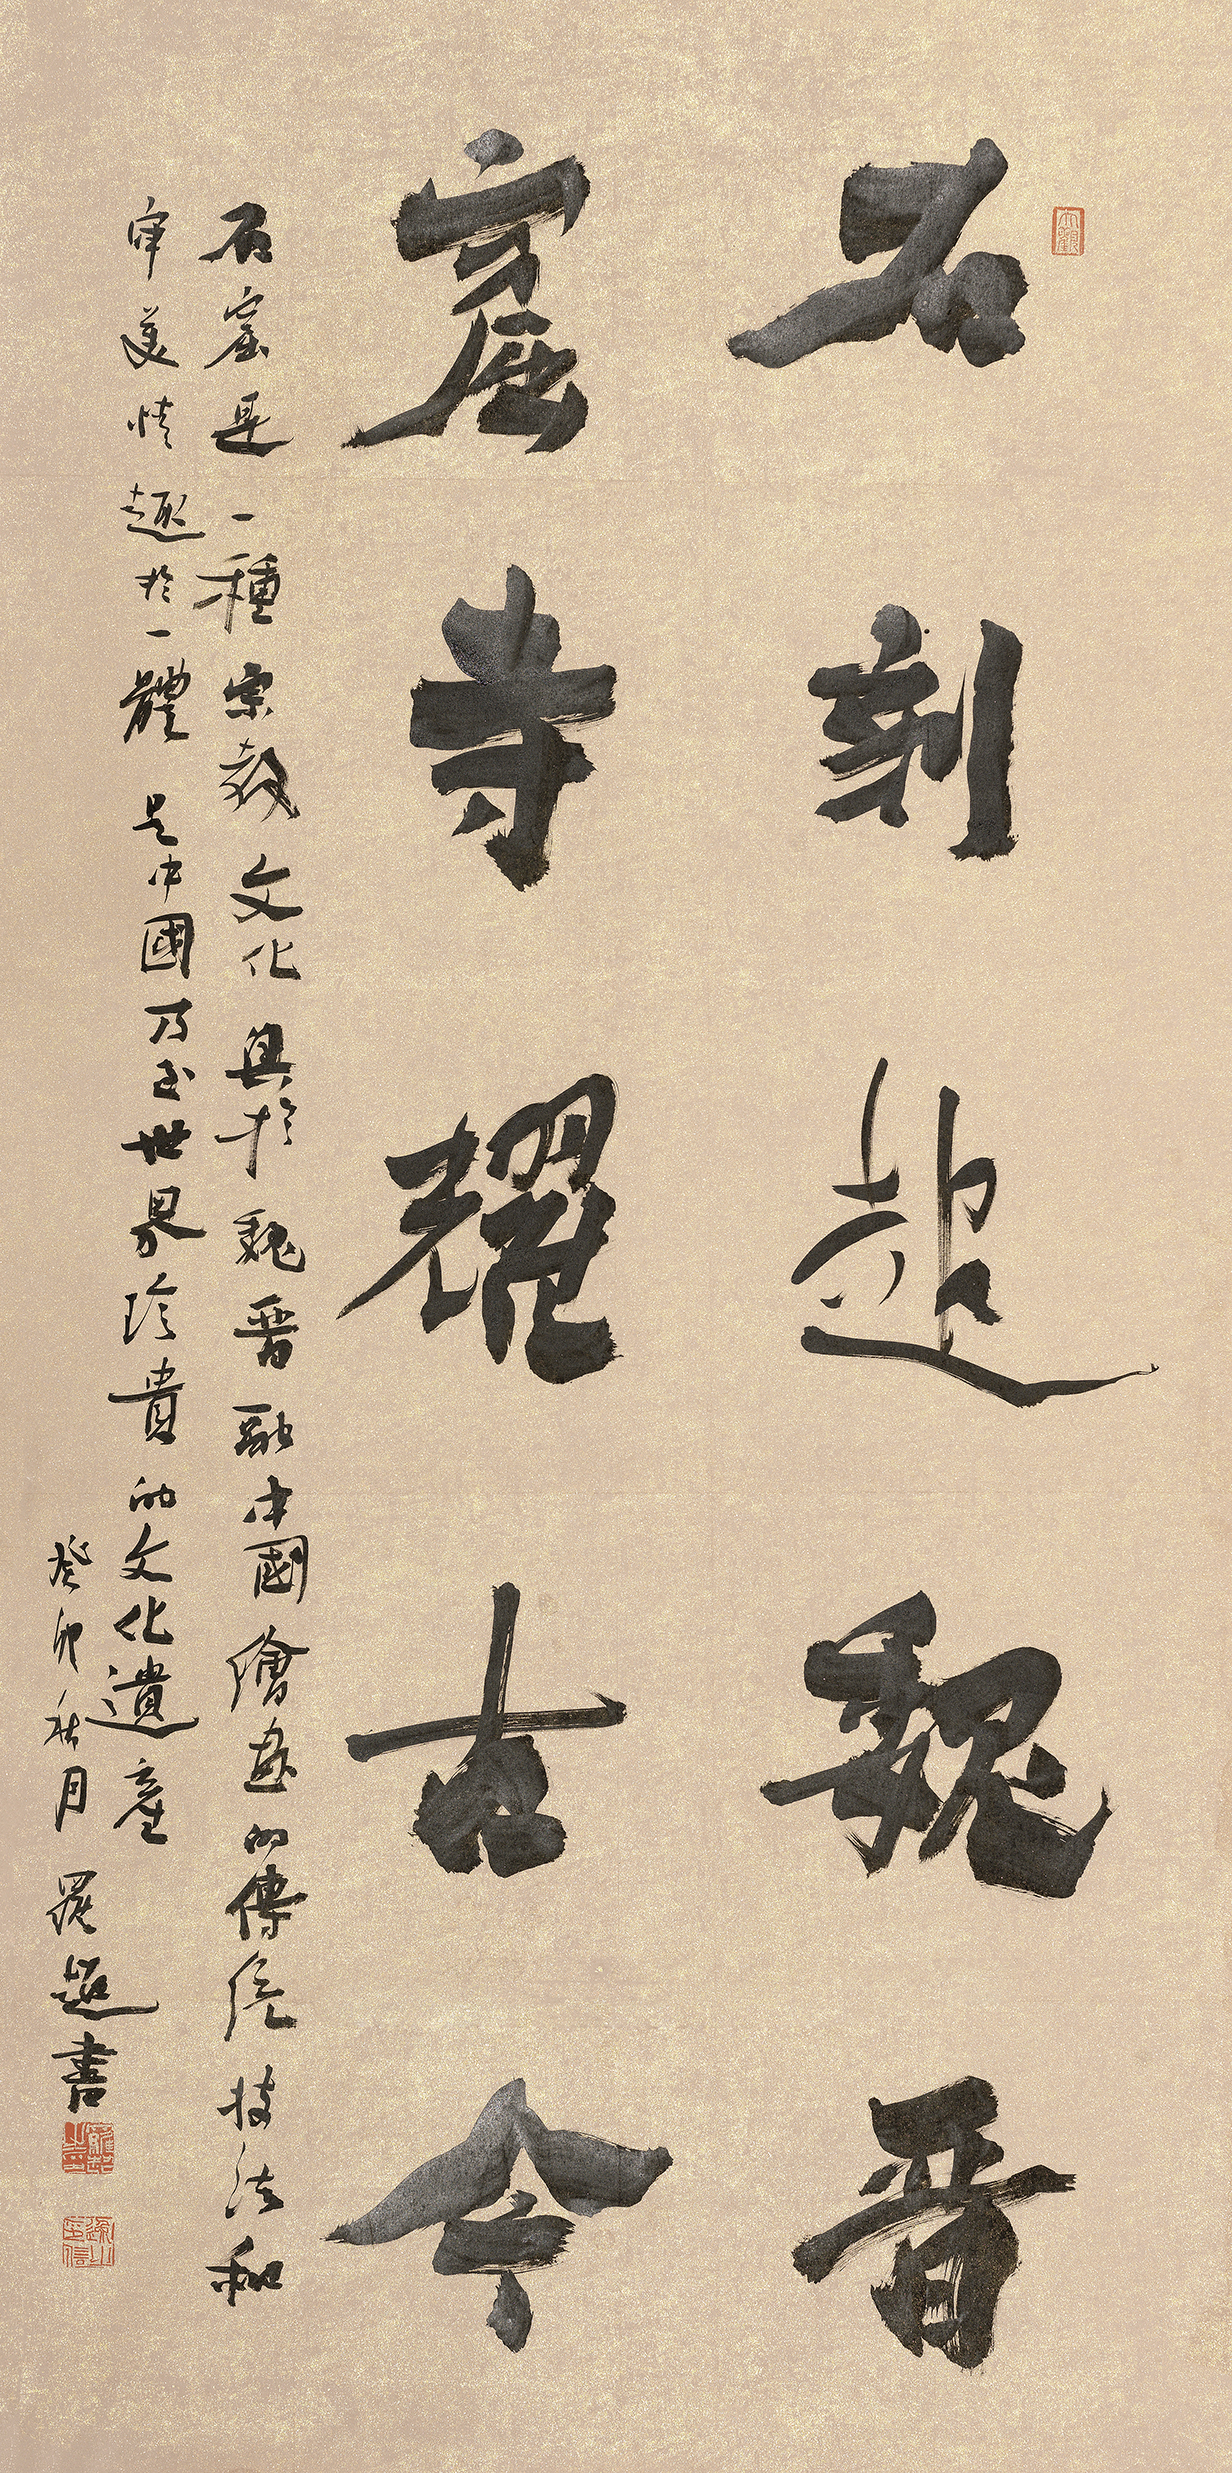 大觀
石刻起魏晋
窟寺耀古今
石窟是一種宗教文化興於魏晋融中國繪畫的傳統技法和
審美情趣於一體是中國乃至世界珍貴的文化遺產
癸卯秋月羅超書
羅超之印